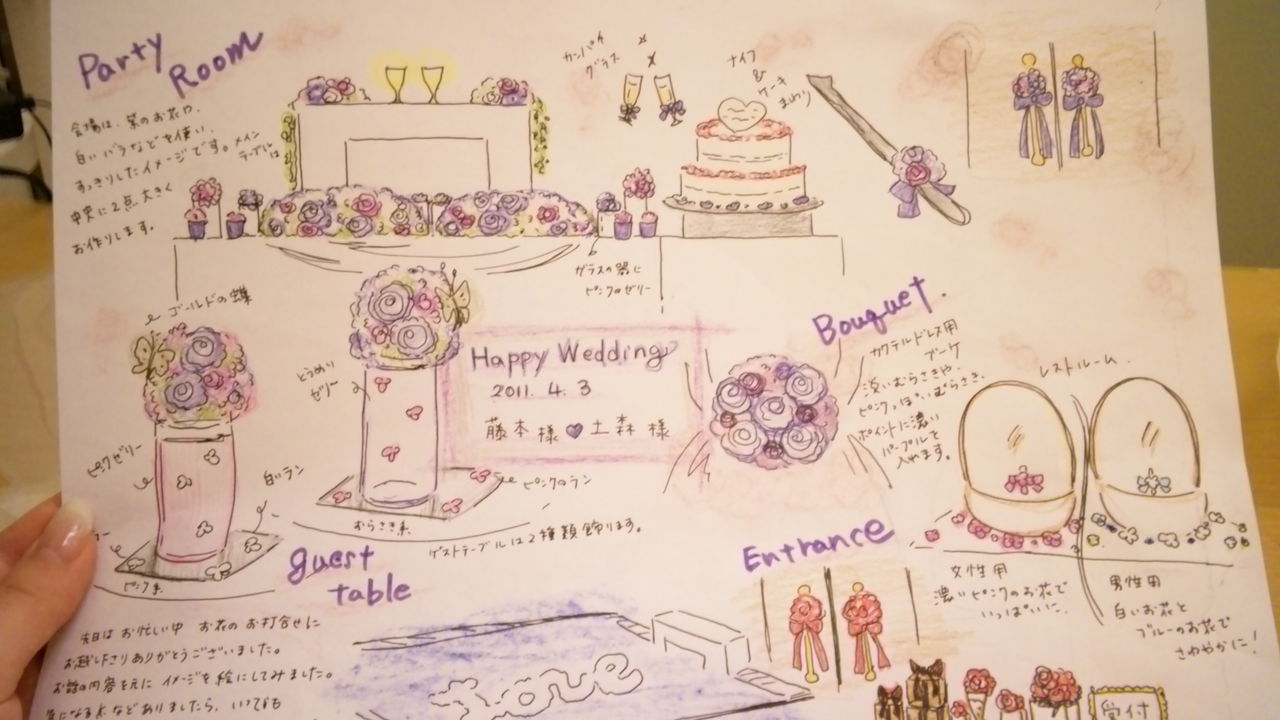 Party
Room
会場は、紫のお花や、
白いバラなどを使い、
すっきりしたイメージです。メイン
テーブルは
中央に2点、大きく
お作りします。
カンパイ
グラス
ナイフ
&
ケーキ
まわり
ガラスの器に
ピンクのゼリー
ゴールドの蝶
とうめい
ゼリー
Happy Wedding
2011. 4. 3
藤本様 ♥ 土森様
Bouquet.
カクテルドレス用
ブーケ
淡いむらさきや、
ピンクっぽいむらさき、
ポイントに濃い
パープルを
入れます。
レストルーム.
ピンクゼリー
白いラン
ピンクのラン
むらさき系
ピンク系
ゲストテーブルは2種類飾ります。
guest
table
Entrance
女性用
濃いピンクのお花で
いっぱいに.
男性用
白いお花と
ブルーのお花で
さわやかに!
先日は お忙しい中 お花の お打合せに
お越し下さり ありがとうございました。
お話の内容を元に イメージを絵にしてみました。
気になる点などありましたら、いつでも
Love
受付